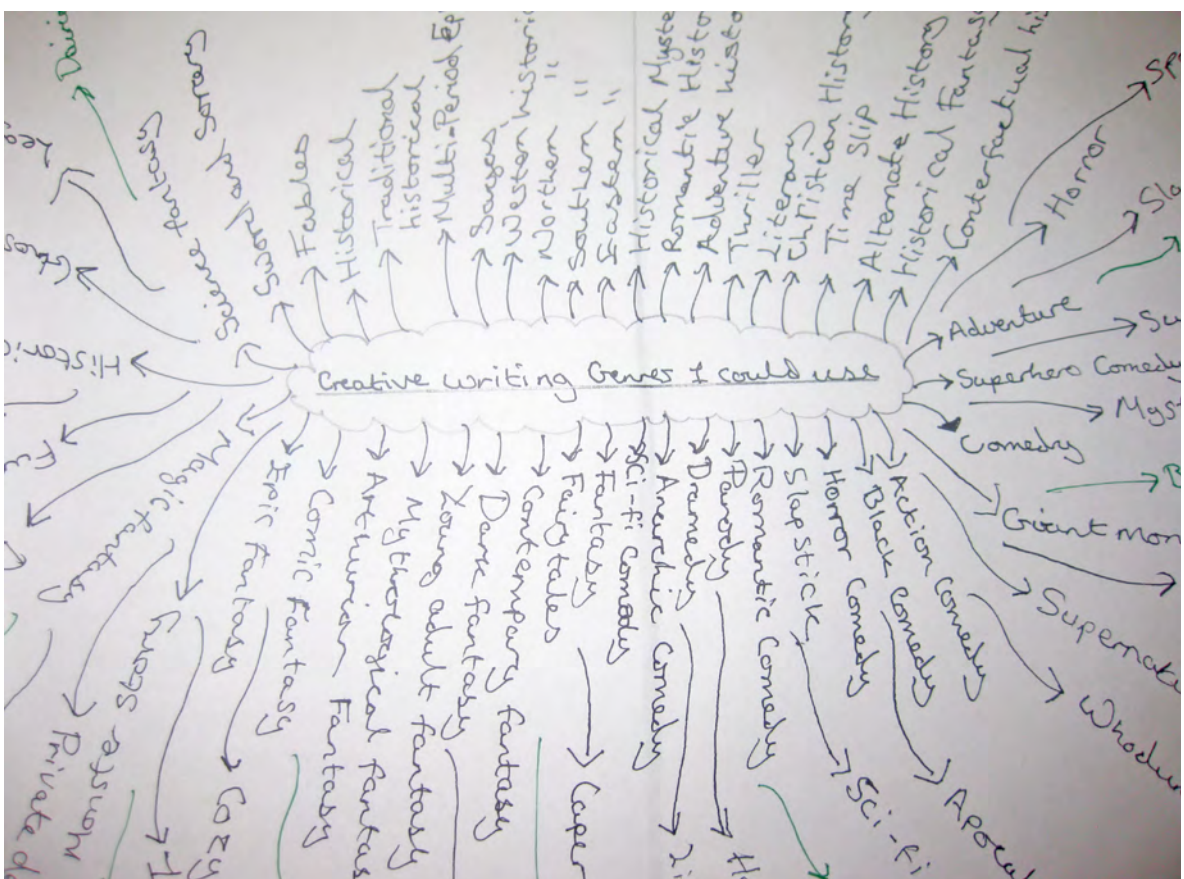 Creative writing Genres I could use
Sword and Sorcery
Fables
Historical
Traditional
historical
Multi-Period
Sagas
Western historic
Northen "
Southen "
Eastern "
Historical Myste
Romantic Histo
Adventure histo
Thriller
Literary
Christian History
Time Slip
Alternate History
Historical Fantasy
Conterfactual hi
Horror
Adventure
Superhero Comedy
Comedy
Myst
Giant Mon
Supernat
Whodun
Action Comedy
Black Comedy
Apocal
Horror Comedy
Slapstick
Sci-fi
Romantic Comedy
Parody
Dramedy
Anarchic Comedy
Sci-fi Comedy
Fantasy
Fairytales
Caper
Contempary fantasy
Dark fantasy
Young adult fantasy
Mythological fantas
Arthurian Fantasy
Comic Fantasy
Epic Fantasy
Cozy
Monster Story
Magic fantasy
Private d
Historic
Science fantasy